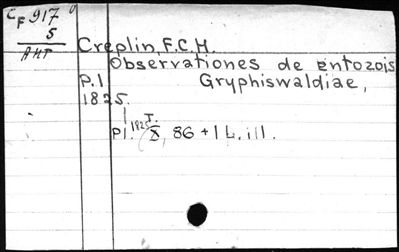 CF 917
5
AHT
Creplin, F.C.H.
Observationes de entozois
P.1 Gryphiswaldiae,
1825.
T.
Pl. 1825 X, 86 + 1 L. ill.